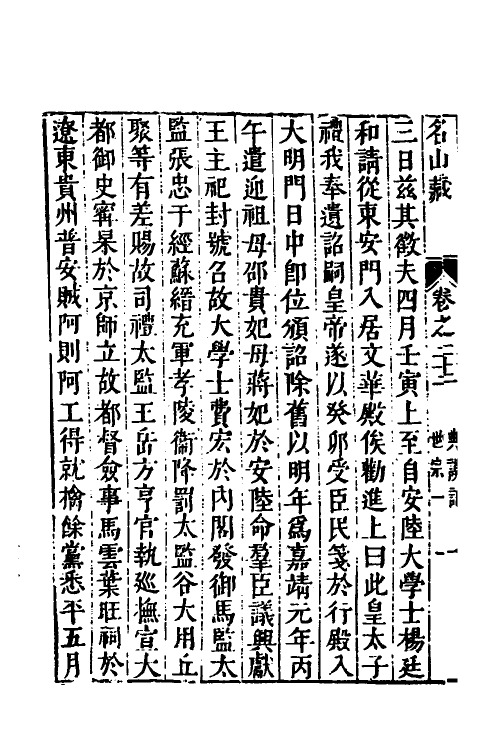 名山藏 卷之二十二 典謨記 世宗一 一
三日茲其徵夫四月壬寅上至自安陸大學士楊廷
和請從東安門入居文華殿俟勸進上曰此皇太子
禮我奉遺詔嗣皇帝遂以癸卯受臣民箋於行殿入
大明門日中卽位頒詔除舊以明年爲嘉靖元年丙
午遣迎祖母邵貴妃母蔣妃於安陸命羣臣議興獻
王主祀封號召故大學士費宏於內閣發御馬監太
監張忠于經蘇縉充軍孝陵衞降罰太監谷大用丘
聚等有差賜故司禮太監王岳方亨官執廵撫宣大
都御史甯杲於京師立故都督僉事馬雲葉旺祠於
遼東貴州普安賊阿則阿工得就擒餘黨悉平五月